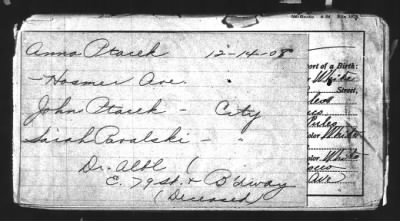 Anna Ptacek 12-14-08
- Hosmer Ave.
John Ptacek - City
Sarah Pavalski - "
Dr. Albl (
E. 79 St. & B'dway
(Deceased
port of a Birth:
White
Street,
White
White
Ave